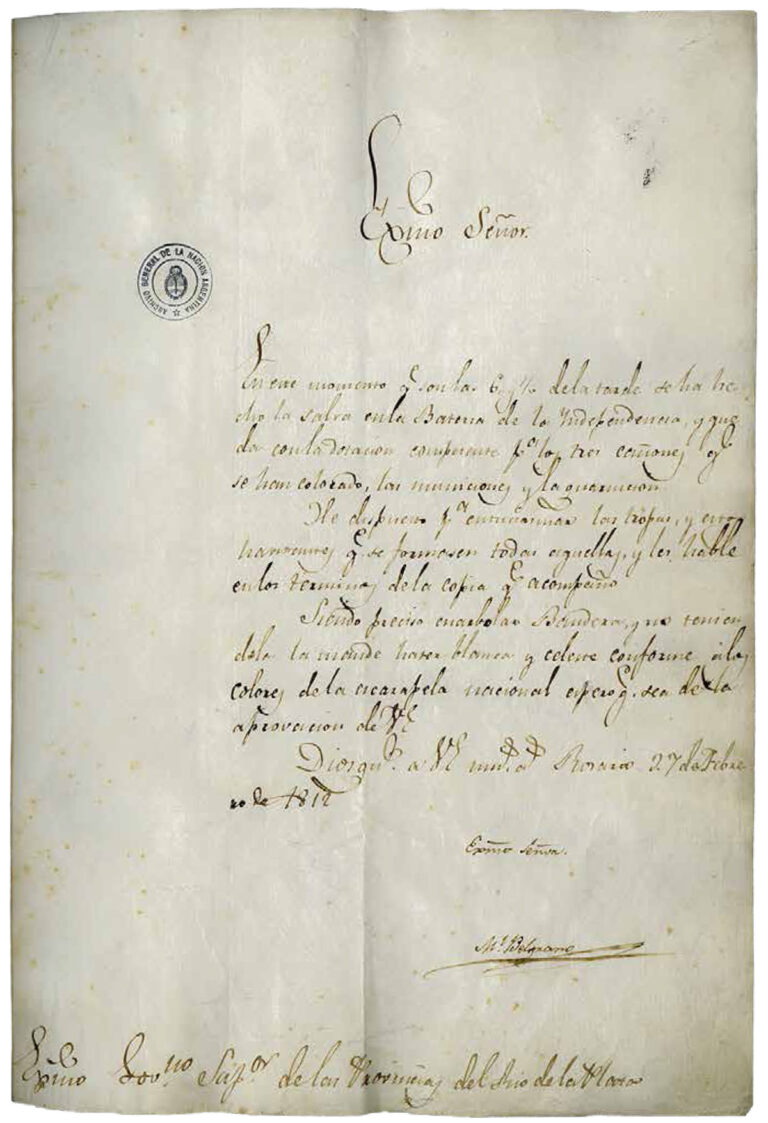 Exmo Señor.
ARCHIVO GENERAL DE LA NACION ARGENTINA
En este momento q.e son las 6 y ½ de la tarde se ha he
cho la salva en la Bateria de la Independencia, y que
da con la dotacion competente p.a los tres cañones q.e
se han colocado, las municiones y la guarnicion.
He dispuesto p.a entusiasmar las tropas, y estos
havitantes q.e se formasen todas aquellas, y les hablé
en los terminos de la copia q.e acompaño
Siendo preciso enarbolar Bandera, y no tenien
dola la mandé hacer blanca y celeste conforme á los
colores de la escarapela nacional espero q.e sea de la
aprovacion de VE
Dios gu.e a VE m.s a.s Rosario 27 de Febre
ro de 1812
Exmo Señor.
M.l Belgrano
Exmo Gov.no Sup.or de las Provincias del Rio de la Plata